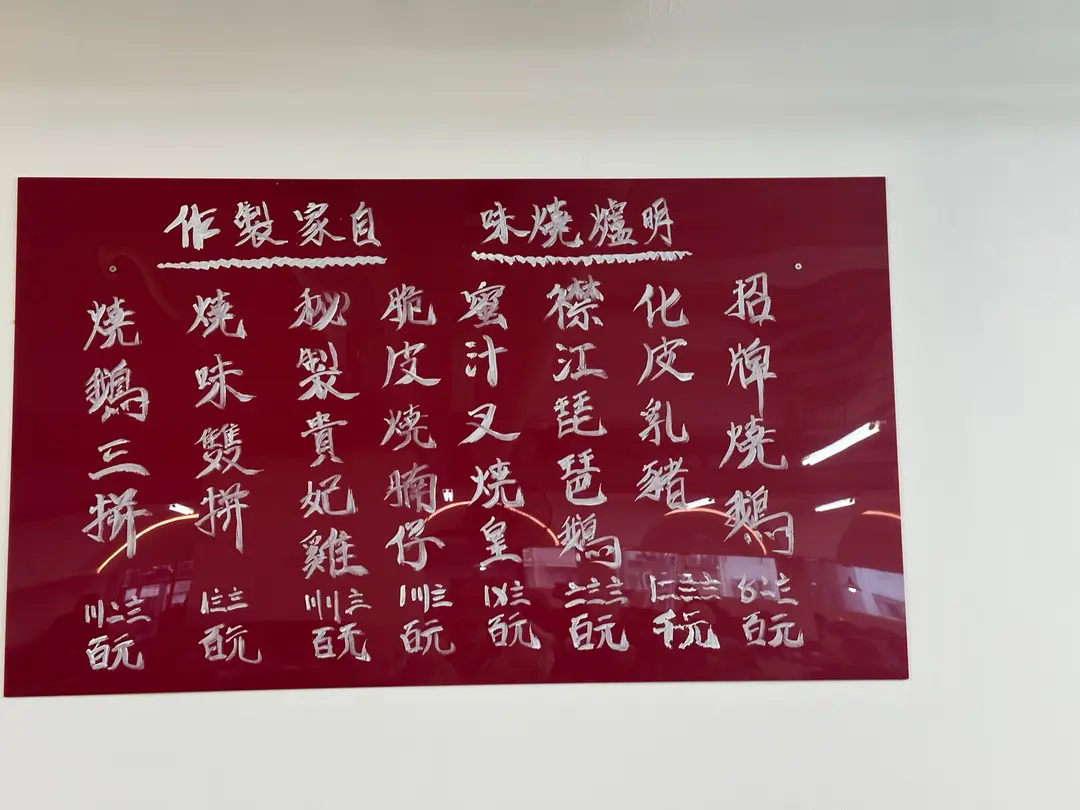 明爐燒味
自家製作
招牌燒鵝
百元
化皮乳豬
千元
襟江琵琶鵝
百元
蜜汁叉燒皇
〡〤三
百元
脆皮燒腩仔
〡〣三
百元
秘製貴妃雞
百元
燒味雙拼
百元
燒鵝三拼
百元